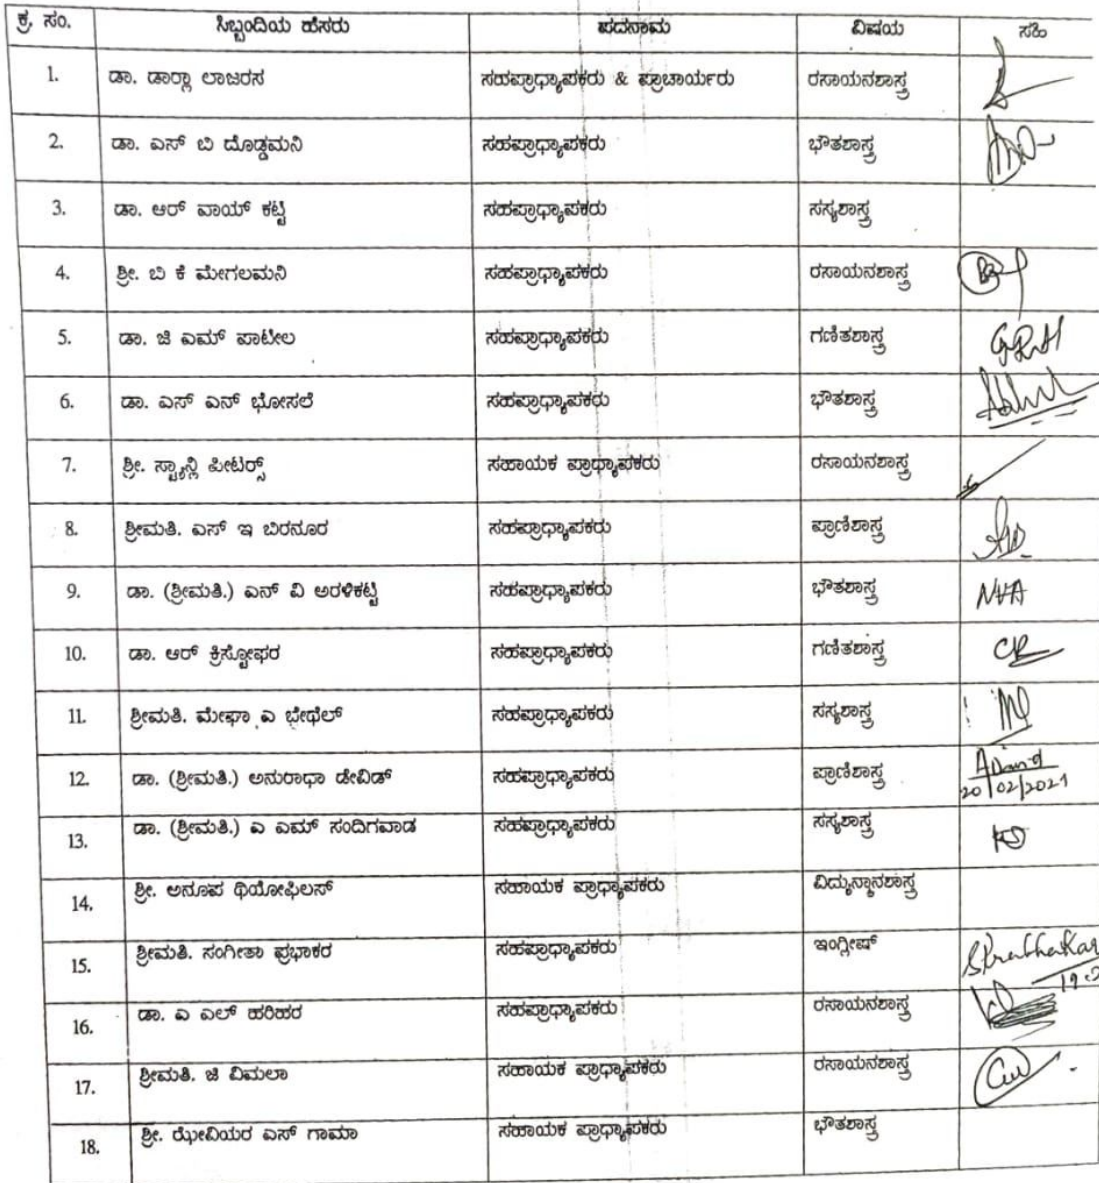 ಕ್ರ. ಸಂ. ಸಿಬ್ಬಂದಿಯ ಹೆಸರು ಪದನಾಮ ವಿಷಯ ಸಹಿ
1. ಡಾ. ಡಾರ‍್ಲಾ ಲಾಜರಸ ಸಹಪ್ರಾಧ್ಯಾಪಕರು & ಪ್ರಾಚಾರ್ಯರು ರಸಾಯನಶಾಸ್ತ್ರ
2. ಡಾ. ಎಸ್ ಬಿ ದೊಡ್ಡಮನಿ ಸಹಪ್ರಾಧ್ಯಾಪಕರು ಭೌತಶಾಸ್ತ್ರ
3. ಡಾ. ಆರ್ ವಾಯ್ ಕಟ್ಟಿ ಸಹಪ್ರಾಧ್ಯಾಪಕರು ಸಸ್ಯಶಾಸ್ತ್ರ
4. ಶ್ರೀ. ಬಿ ಕೆ ಮೇಗಲಮನಿ ಸಹಪ್ರಾಧ್ಯಾಪಕರು ರಸಾಯನಶಾಸ್ತ್ರ
5. ಡಾ. ಜಿ ಎಮ್ ಪಾಟೀಲ ಸಹಪ್ರಾಧ್ಯಾಪಕರು ಗಣಿತಶಾಸ್ತ್ರ
6. ಡಾ. ಎಸ್ ಎನ್ ಭೋಸಲೆ ಸಹಪ್ರಾಧ್ಯಾಪಕರು ಭೌತಶಾಸ್ತ್ರ
7. ಶ್ರೀ. ಸ್ಟ್ಯಾನ್ಲಿ ಪೀಟರ್ಸ್ ಸಹಾಯಕ ಪ್ರಾಧ್ಯಾಪಕರು ರಸಾಯನಶಾಸ್ತ್ರ
8. ಶ್ರೀಮತಿ. ಎಸ್ ಇ ಬಿರನೂರ ಸಹಪ್ರಾಧ್ಯಾಪಕರು ಪ್ರಾಣಿಶಾಸ್ತ್ರ
9. ಡಾ. (ಶ್ರೀಮತಿ.) ಎನ್ ವಿ ಅರಳಿಕಟ್ಟಿ ಸಹಪ್ರಾಧ್ಯಾಪಕರು ಭೌತಶಾಸ್ತ್ರ NVA
10. ಡಾ. ಆರ್ ಕ್ರಿಸ್ಟೋಫರ ಸಹಪ್ರಾಧ್ಯಾಪಕರು ಗಣಿತಶಾಸ್ತ್ರ CR
11. ಶ್ರೀಮತಿ. ಮೇಘಾ ಎ ಭೇಥೆಲ್ ಸಹಪ್ರಾಧ್ಯಾಪಕರು ಸಸ್ಯಶಾಸ್ತ್ರ
12. ಡಾ. (ಶ್ರೀಮತಿ.) ಅನುರಾಧಾ ಡೇವಿಡ್ ಸಹಪ್ರಾಧ್ಯಾಪಕರು ಪ್ರಾಣಿಶಾಸ್ತ್ರ ADavid
20/02/2021
13. ಡಾ. (ಶ್ರೀಮತಿ.) ಎ ಎಮ್ ಸಂದಿಗವಾಡ ಸಹಪ್ರಾಧ್ಯಾಪಕರು ಸಸ್ಯಶಾಸ್ತ್ರ
14. ಶ್ರೀ. ಅನೂಪ ಥಿಯೋಫಿಲಸ್ ಸಹಾಯಕ ಪ್ರಾಧ್ಯಾಪಕರು ವಿದ್ಯುನ್ಮಾನಶಾಸ್ತ್ರ
15. ಶ್ರೀಮತಿ. ಸಂಗೀತಾ ಪ್ರಭಾಕರ ಸಹಪ್ರಾಧ್ಯಾಪಕರು ಇಂಗ್ಲೀಷ್ SPrabhakar
16. ಡಾ. ಎ ಎಲ್ ಹರಿಹರ ಸಹಪ್ರಾಧ್ಯಾಪಕರು ರಸಾಯನಶಾಸ್ತ್ರ
17. ಶ್ರೀಮತಿ. ಜಿ ವಿಮಲಾ ಸಹಾಯಕ ಪ್ರಾಧ್ಯಾಪಕರು ರಸಾಯನಶಾಸ್ತ್ರ
18. ಶ್ರೀ. ಝೇವಿಯರ ಎಸ್ ಗಾಮಾ ಸಹಾಯಕ ಪ್ರಾಧ್ಯಾಪಕರು ಭೌತಶಾಸ್ತ್ರ